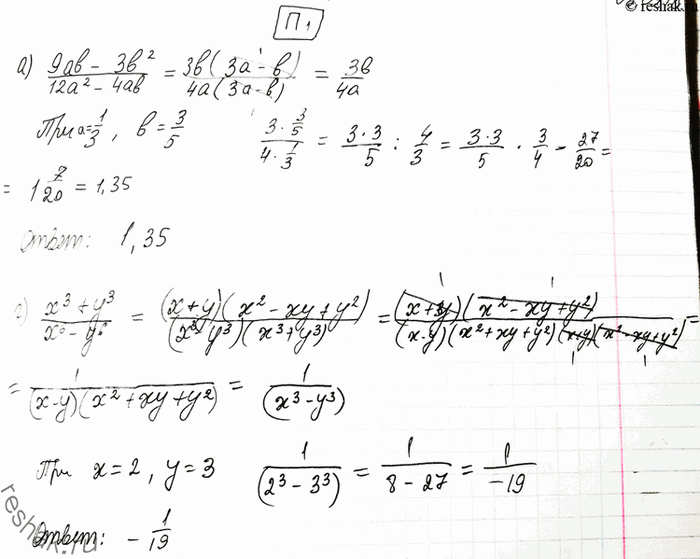 © reshak.ru
П1
а) (9ab - 3b²)/(12a² - 4ab) = 3b(3a - b)/4a(3a - b) = 3b/4a
При a = 1/3, b = 3/5 (3 · 3/5)/(4 · 1/3) = (3·3)/5 : 4/3 = (3·3)/5 · 3/4 - 27/20 =
= 1 7/20 = 1,35
Ответ: 1,35
г) (x³ + y³)/(x⁶ - y⁶) = (x+y)(x² - xy + y²)/(x³ y³)(x³ + y³) = (x+y)(x² - xy + y²)/(x-y)(x² + xy + y²)(x+y)(x² - xy + y²) =
= 1/(x-y)(x² + xy + y²) = 1/(x³ - y³)
При x = 2, y = 3 1/(2³ - 3³) = 1/(8 - 27) = 1/-19
Ответ: - 1/19
reshak.ru